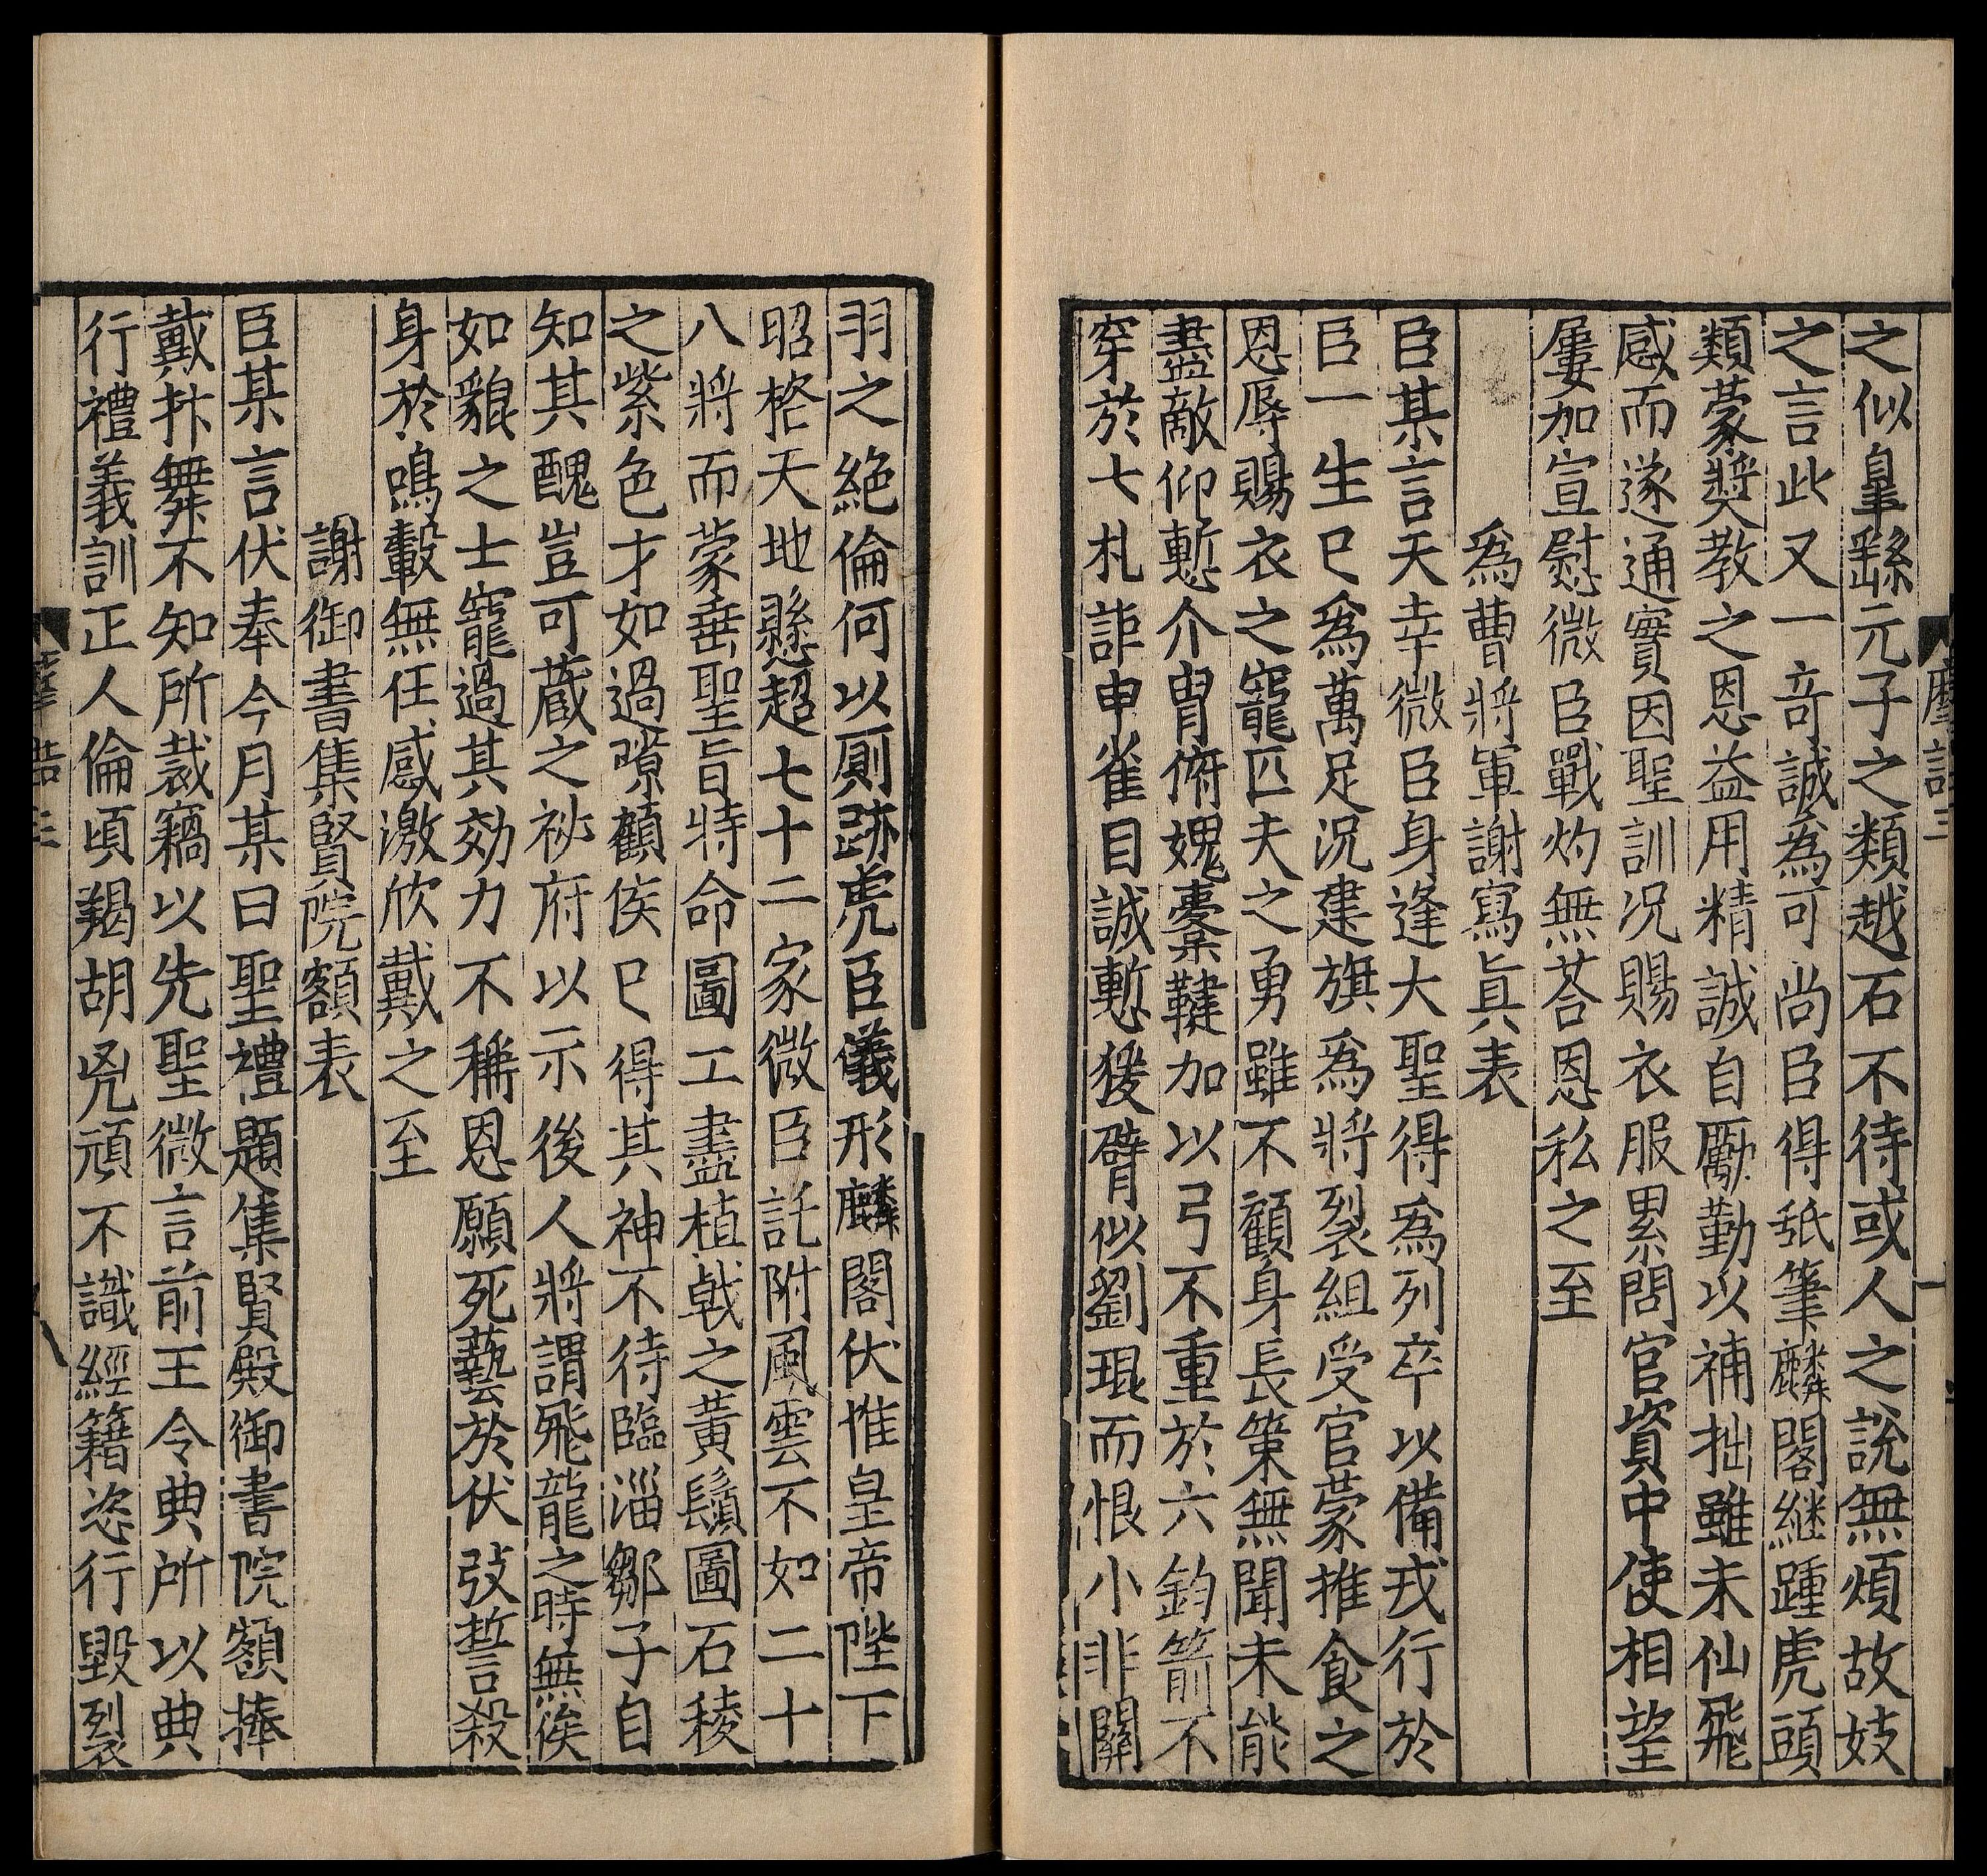 之似皐繇元子之類越石不待或人之說無煩故妓
之言此又一竒誠為可尚臣得舐筆麟閣継踵虎頭
類蒙奬教之恩益用精誠自勵勤以補拙雖未仙飛
感而遂通實因聖訓况賜衣服累問官資中使相望
屢加宣慰微臣戰灼無荅恩私之至
爲曹將軍謝寫眞表
臣某言天幸微臣身逢大聖得爲列卒以備戎行於
臣一生已爲萬足况建旗爲將裂組受官蒙推食之
恩辱賜衣之寵匹夫之勇雖不顧身長策無聞未能
盡敵仰慙介胄俯媿櫜鞬加以弓不重於六鈞箭不
穿於七札詎申雀目誠慙猨臂似劉琨而恨小非關
羽之絶倫何以厠跡虎臣儀形麟閣伏惟皇帝陛下
昭格天地懸超七十二家微臣託附風雲不如二十
八將而蒙垂聖旨特命圖工盡植戟之黃鬚圖石稜
之紫色才如過隙顧侯已得其神不待臨淄鄒子自
知其醜豈可藏之祕府以示後人將謂飛龍之時無俟
如貔之士寵過其効力不稱恩願死藝於伏弢誓殺
身於鳴轂無任感激欣戴之至
謝御書集賢院額表
臣某言伏奉今月某日聖禮題集賢殿御書院額捧
戴抃舞不知所裁竊以先聖微言前王令典所以典
行禮義訓正人倫頃羯胡兇頑不識經籍恣行毀裂